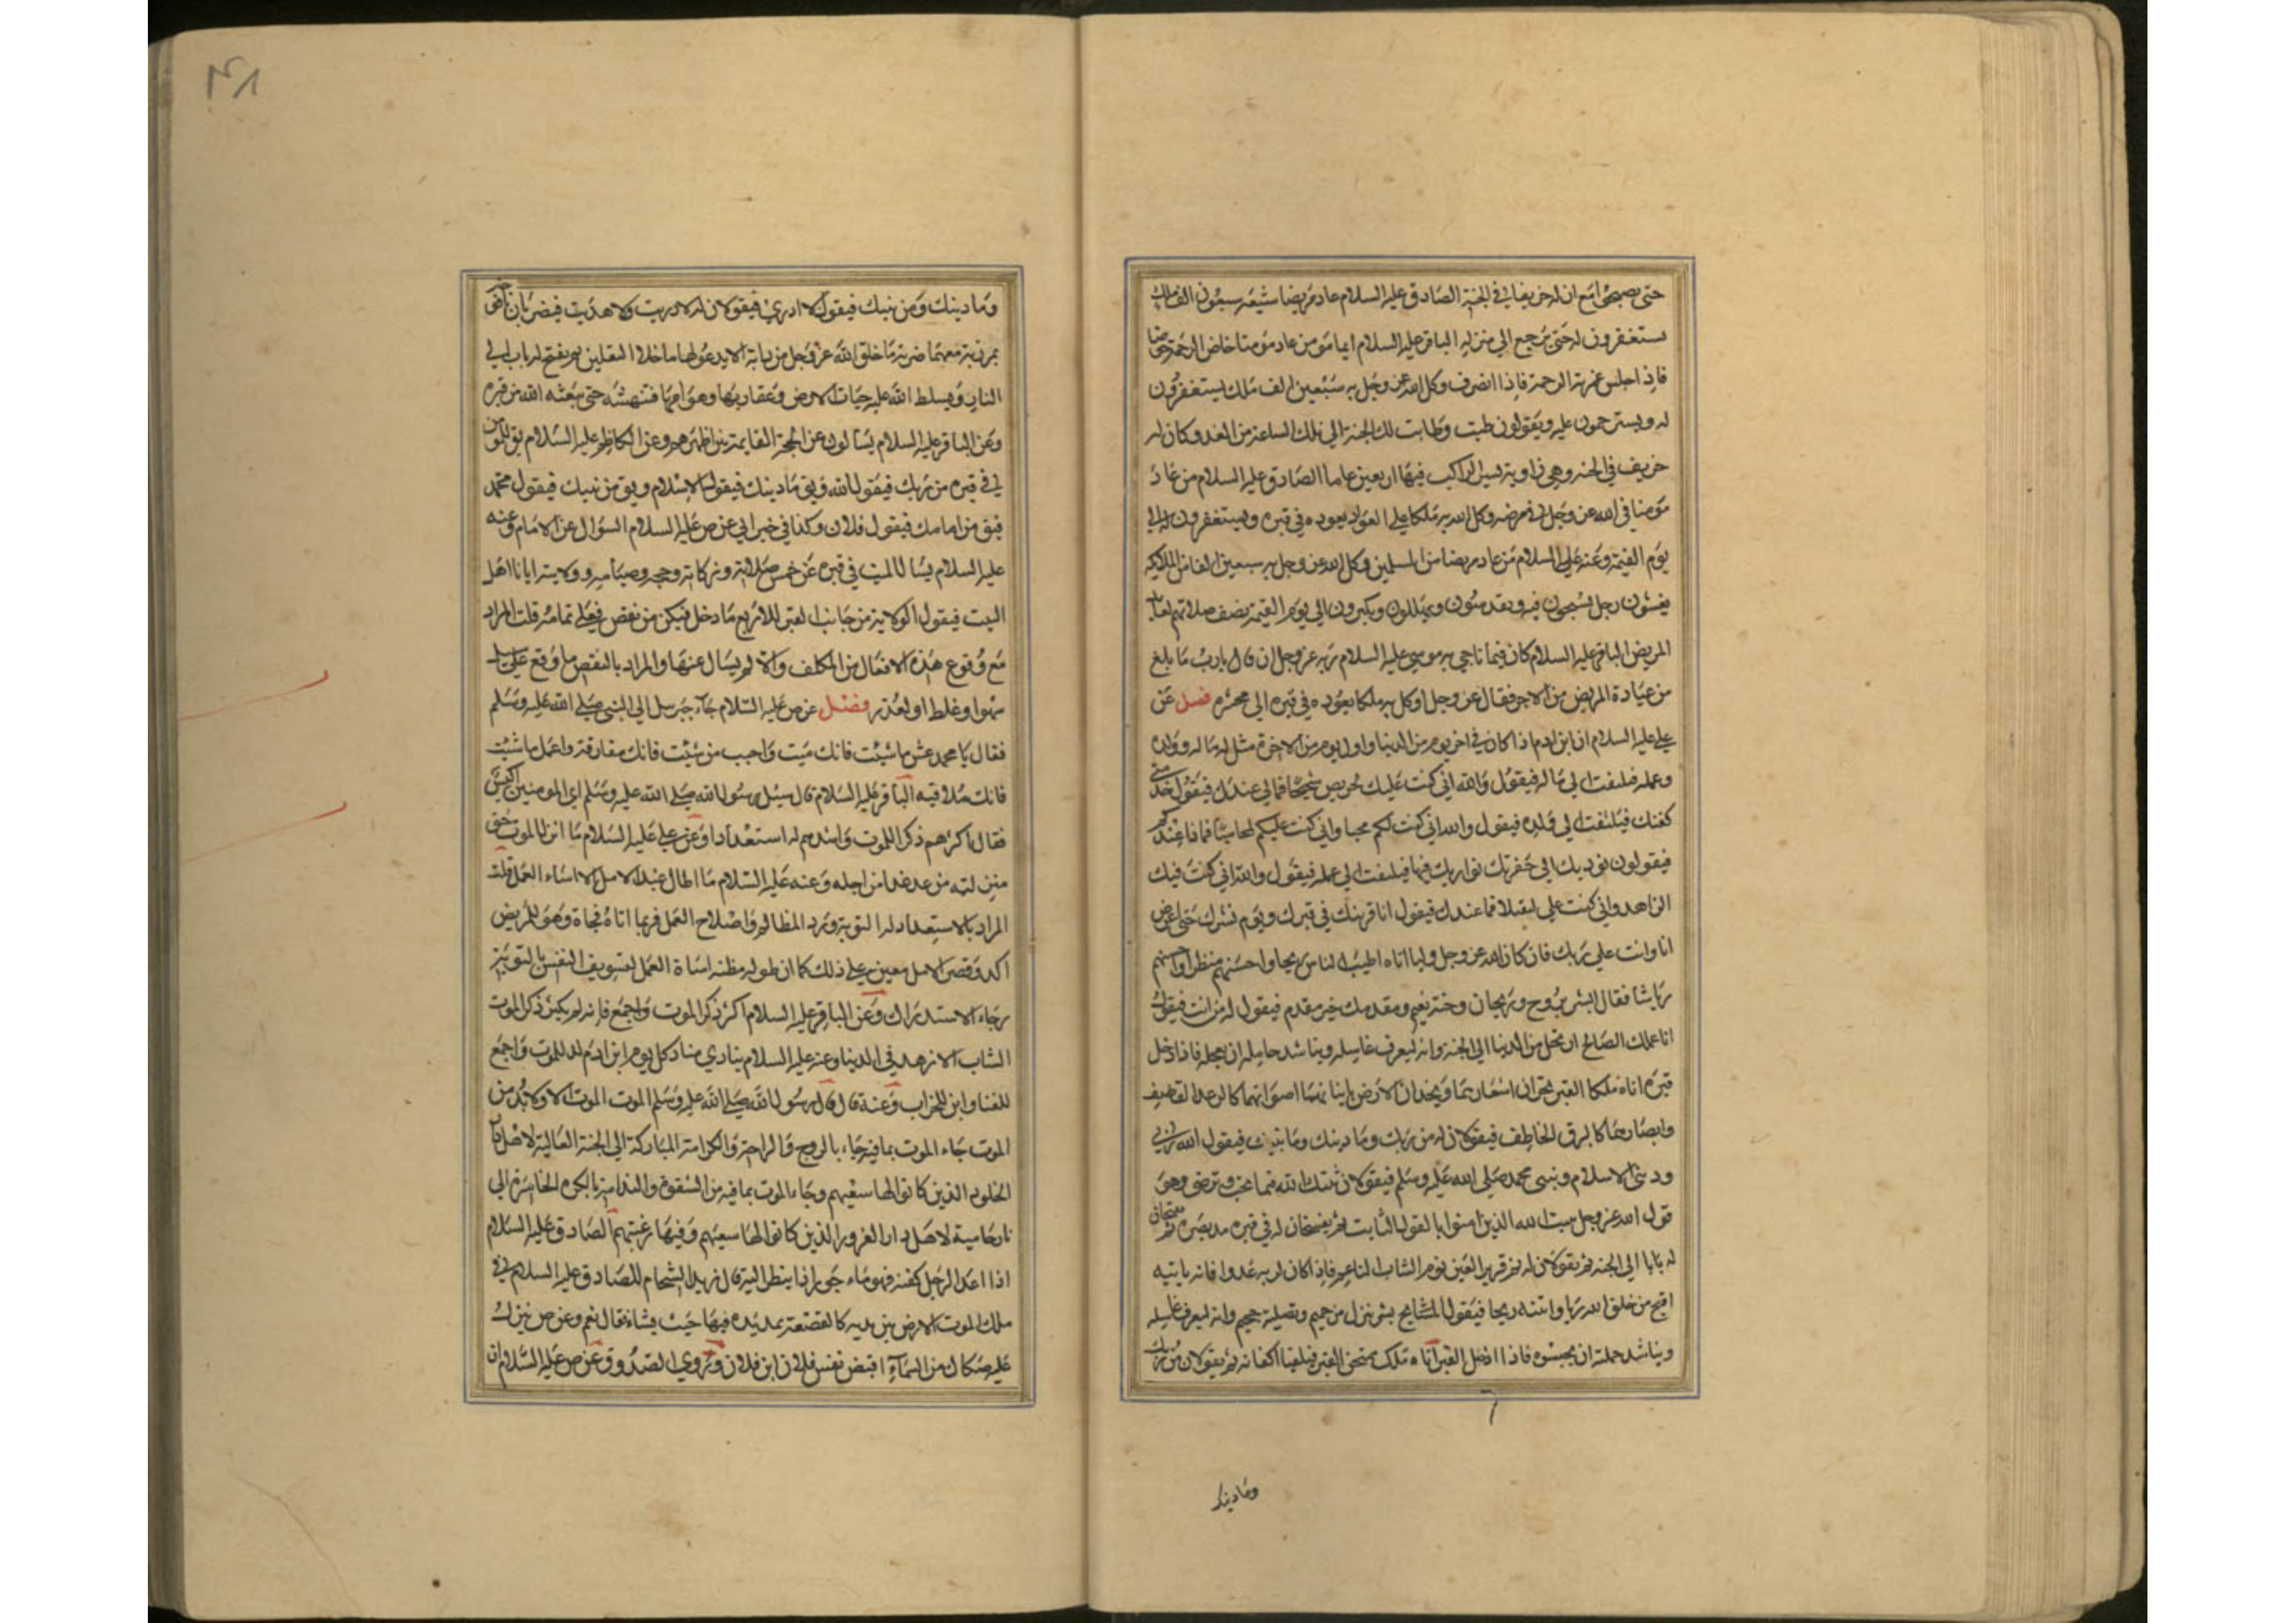 حتى يصبح مع ان له خريفا في الجنة الصادق عليه السلام عاد مريضا شيعه سبعون الف ملك
يستغفرون له حتى يرجع الى منزله الباقر عليه السلام ايما مؤمن عاد مؤمنا خاض الرحمة خوضا
فاذا جلس غمرته الرحمة فاذا انصرف وكل الله عز وجل به سبعين الف ملك يستغفرون
له ويسترحمون عليه ويقولون طبت وطابت لك الجنة الى تلك الساعة من الغد وكان له
خريف في الجنه وهي زاوية يسير الراكب فيها اربعين عاما الصادق عليه السلام من عاد
مؤمنا في الله عز وجل في مرضه وكل الله به ملكا من العواد يعوده في قبره ويستغفرون له الى
يوم القيمة وعنه عليه السلام من عاد مريضا من المسلمين وكل الله عز وجل به سبعين الفا من الملايكه
يغشون رحله يسبحون فيه ويقدسون ويهللون ويكبرون الى يوم القيمة نصف صلاتهم لعايد
المريض الباقر عليه السلام كان فيما ناجى به موسى عليه السلام ربه عز وجل ان قال يا رب ما بلغ
من عيادة المريض من الاجر فقال عز وجل اوكل به ملكا يعوده في قبره الى محشره فصل عن
علي عليه السلام ان ابن ادم اذا كان في اخر يوم من الدنيا واول يوم من الاخرة مثل له ماله وولده
وعمله فيلتفت الى ماله فيقول والله اني كنت عليك لحريص شحيحا فمالي عندك فيقول خذ مني
كفنك فيلتفت الى ولده فيقول والله اني كنت لكم محبا واني كنت عليكم لمحاميا فماذا عندكم
فيقولون نوديك الى حفرتك نواريك فيها فيلتفت الى عمله فيقول والله اني كنت فيك
الزاهد واني كنت علي لثقيلا فما عندك فيقول انا قرينك في قبرك ويوم نشرك حتى اعرض
انا وانت على ربك فان كان لله عز وجل وليا اتاه اطيب الناس ريحا واحسنهم منظرا واحسنهم
رياشا فقال ابشر بروح وريحان وجنة نعيم ومقدمك خير مقدم فيقول له من انت فيقول
انا عملك الصالح ارتحل من الدنيا الى الجنة وانه ليعرف غاسله ويناشد حامله ان يعجله فاذا دخل
قبره اتاه ملكا القبر يجران اشعارهما ويخدان الارض بانيابهما اصواتهما كالرعد القاصف
وابصارهما كالبرق الخاطف فيقولان له من ربك وما دينك وما نبيك فيقول الله ربي
وديني الاسلام ونبيي محمد صلى الله عليه وسلم فيقولان ثبتك الله فيما تحب وترضى وهو
قول الله عز وجل يثبت الله الذين امنوا بالقول الثابت ثم يفسحان له في قبره مد بصره ثم يفتحان
له بابا الى الجنة ثم يقولان له نم قرير العين نوم الشاب الناعم فاذا كان لربه عدوا فانه ياتيه
اقبح من خلق الله زيا وانتنه ريحا فيقول ابشر بنزل من حميم وتصلية جحيم وانه ليعرف غاسله
ويناشد حملته ان يحبسوه فاذا ادخل القبر اتاه ملك ممتحن القبر فيلقيا اكفانه ثم يقولان من ربك
وما دينك
وما دينك ومن نبيك فيقول لا ادري فيقولان له لا دريت ولا هديت فيضربان يافوخه
بمرزبة معهما ضربة ما خلق الله عز وجل من دابة الا يذعر لها ما خلا الثقلين ثم يفتح له باب الى
النار ويسلط الله عليه حيات الارض وعقاربها وهوامها فتنهشه حتى يبعثه الله من قبره
وعن الباقر عليه السلام يسالون عن الحجة القايمة بين اظهرهم وعن الكاظم عليه السلام يق للمؤمن
في قبره من ربك فيقول الله ويق ما دينك فيقول الاسلام ويق من نبيك فيقول محمد
فيق من امامك فيقول فلان وكذا في خبر ابي عن ص عليه السلام السؤال عن الامام وعنه
عليه السلام يسال الميت في قبره عن خمس صلاته وزكاته وحجه وصيامه وولايته ايانا اهل
البيت فيقول الولاية من جانب القبر للاربع ما دخل فيكن من نقص فعلي تمامه قلت المراد
مع وقوع هذه الافعال من المكلف والا لم يسال عنها والمراد بالنقص ما وقع على سبيل
سهوا وغلط او لعذر فصل عن ص عليه السلام جاء جبرسل الى النبي صلى الله عليه وسلم
فقال يا محمد عش ما شئت فانك ميت واحبب من شئت فانك مفارقه واعمل ما شئت
فانك ملاقيه الباقر عليه السلام قال سئل رسول الله صلى الله عليه وسلم اي المومنين اكيس
فقال اكثرهم ذكر الموت واشدهم له استعدادا وعن علي عليه السلام ما انزل الموت حق
منزلته من عد غدا من اجله وعنه عليه السلام ما اطال عبد الامل الا اساء العمل قلت
المراد بالاستعداد له التوبة ورد المظالم واصلاح العمل فربما اتاه فجاة وهو للمريض
اكد وقصر الامل معين على ذلك كما ان طوله مظنه اساة العمل لتسويف النفس بالتوبة
رجاء الاستدراك وعن الباقر عليه السلام اكثر ذكر الموت واجمع فانه لم يكثر ذكر الموت
الشاب الا زهد في الدنيا وعنه عليه السلام ينادي مناد كل يوم ابن ادم لد للموت واجمع
للفنا وابن للخراب وعنه قال قال رسول الله صلى الله عليه وسلم الموت الموت الا ولا بد من
الموت جاء الموت بما فيه جاء بالروح والراحة والكرامة المباركة الى الجنة العالية لاهل دار
الخلود الذين كانوا لها سعيهم وجاء الموت بما فيه من الشقوة والندامة بالكرة الخاسرة الى
نار حامية لاهل دار الغرور الذين كانوا لها سعيهم وفيها رغبتهم الصادق عليه السلام
اذا اعد الرجل كفنه فهو ماجور اذا نظر اليه قال زيد الشحام للصادق عليه السلام في
ملك الموت الارض بين يديه كالقصعة يمد يده فيها حيث يشاء فقال نعم وعن ص ينزل
عليه صكاك من السماء اقبض نفس فلان ابن فلان وروى الصدوق عن ص عليه السلام ان